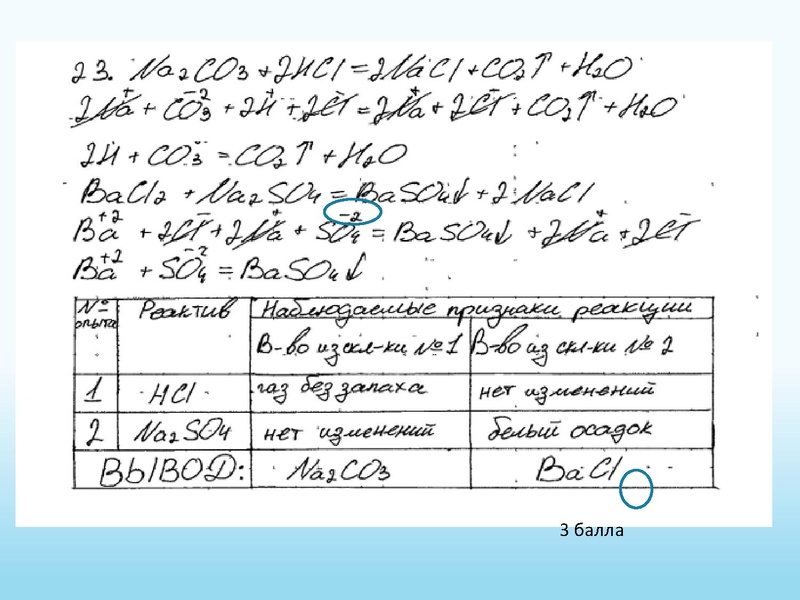 23. Na2CO3 + 2HCl = 2NaCl + CO2↑ + H2O
2Na⁺ + CO3⁻² + 2H⁺ + 2Cl⁻ = 2Na⁺ + 2Cl⁻ + CO2↑ + H2O
2H + CO3 = CO2↑ + H2O
BaCl2 + Na2SO4 = BaSO4↓ + 2NaCl
Ba⁺² + 2Cl⁻ + 2Na⁺ + SO4⁻² = BaSO4↓ + 2Na⁺ + 2Cl⁻
Ba⁺² + SO4⁻² = BaSO4↓
№ опыта Реактив Наблюдаемые признаки реакции
В-во из скл-ки №1 В-во из скл-ки №2
1 HCl газ без запаха нет изменений
2 Na2SO4 нет изменений белый осадок
ВЫВОД: Na2CO3 BaCl
3 балла